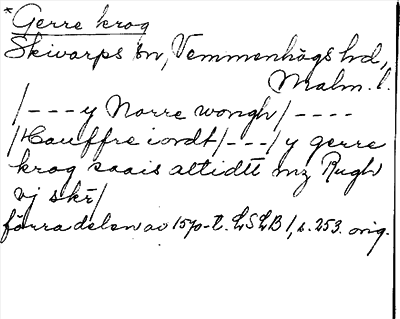 *Gerre krog
Skivarps sn, Vemmenhögs hd,
Malm. l.
/---y Norre wongh/----
/Hauffre iordt/---/y gerre
krog saais altidtt mz Rugh
vj skr̄/
förra delen av 1570-t. LSLB 1, s. 253. orig.